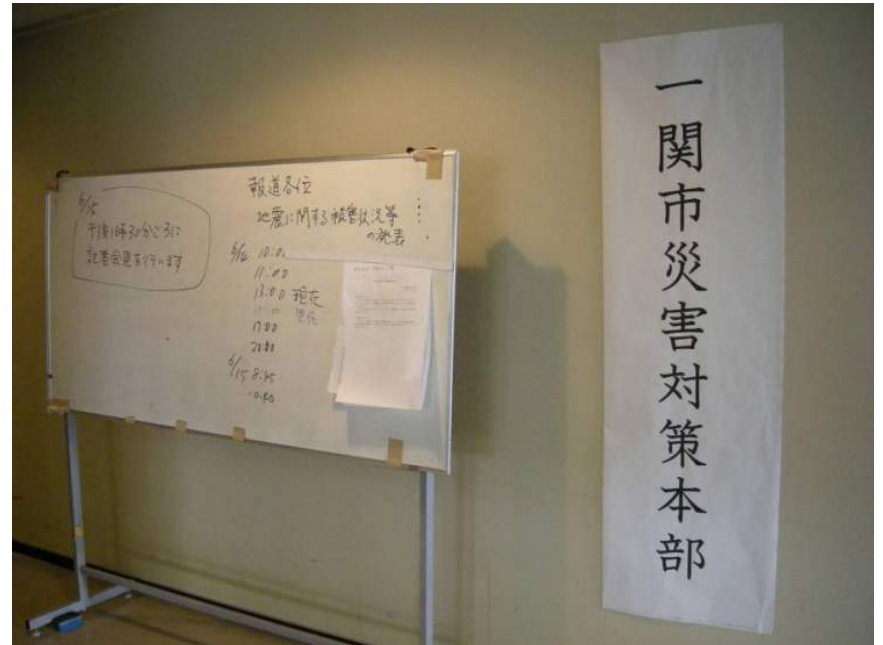 6/15
午後1時30分ごろに
記者会見を行います
報道各位
地震に関する被害状況等
の発表
6/14 10:0
11:00
13:00 現在
17:00
20:00
6/15 8:45
一関市災害対策本部